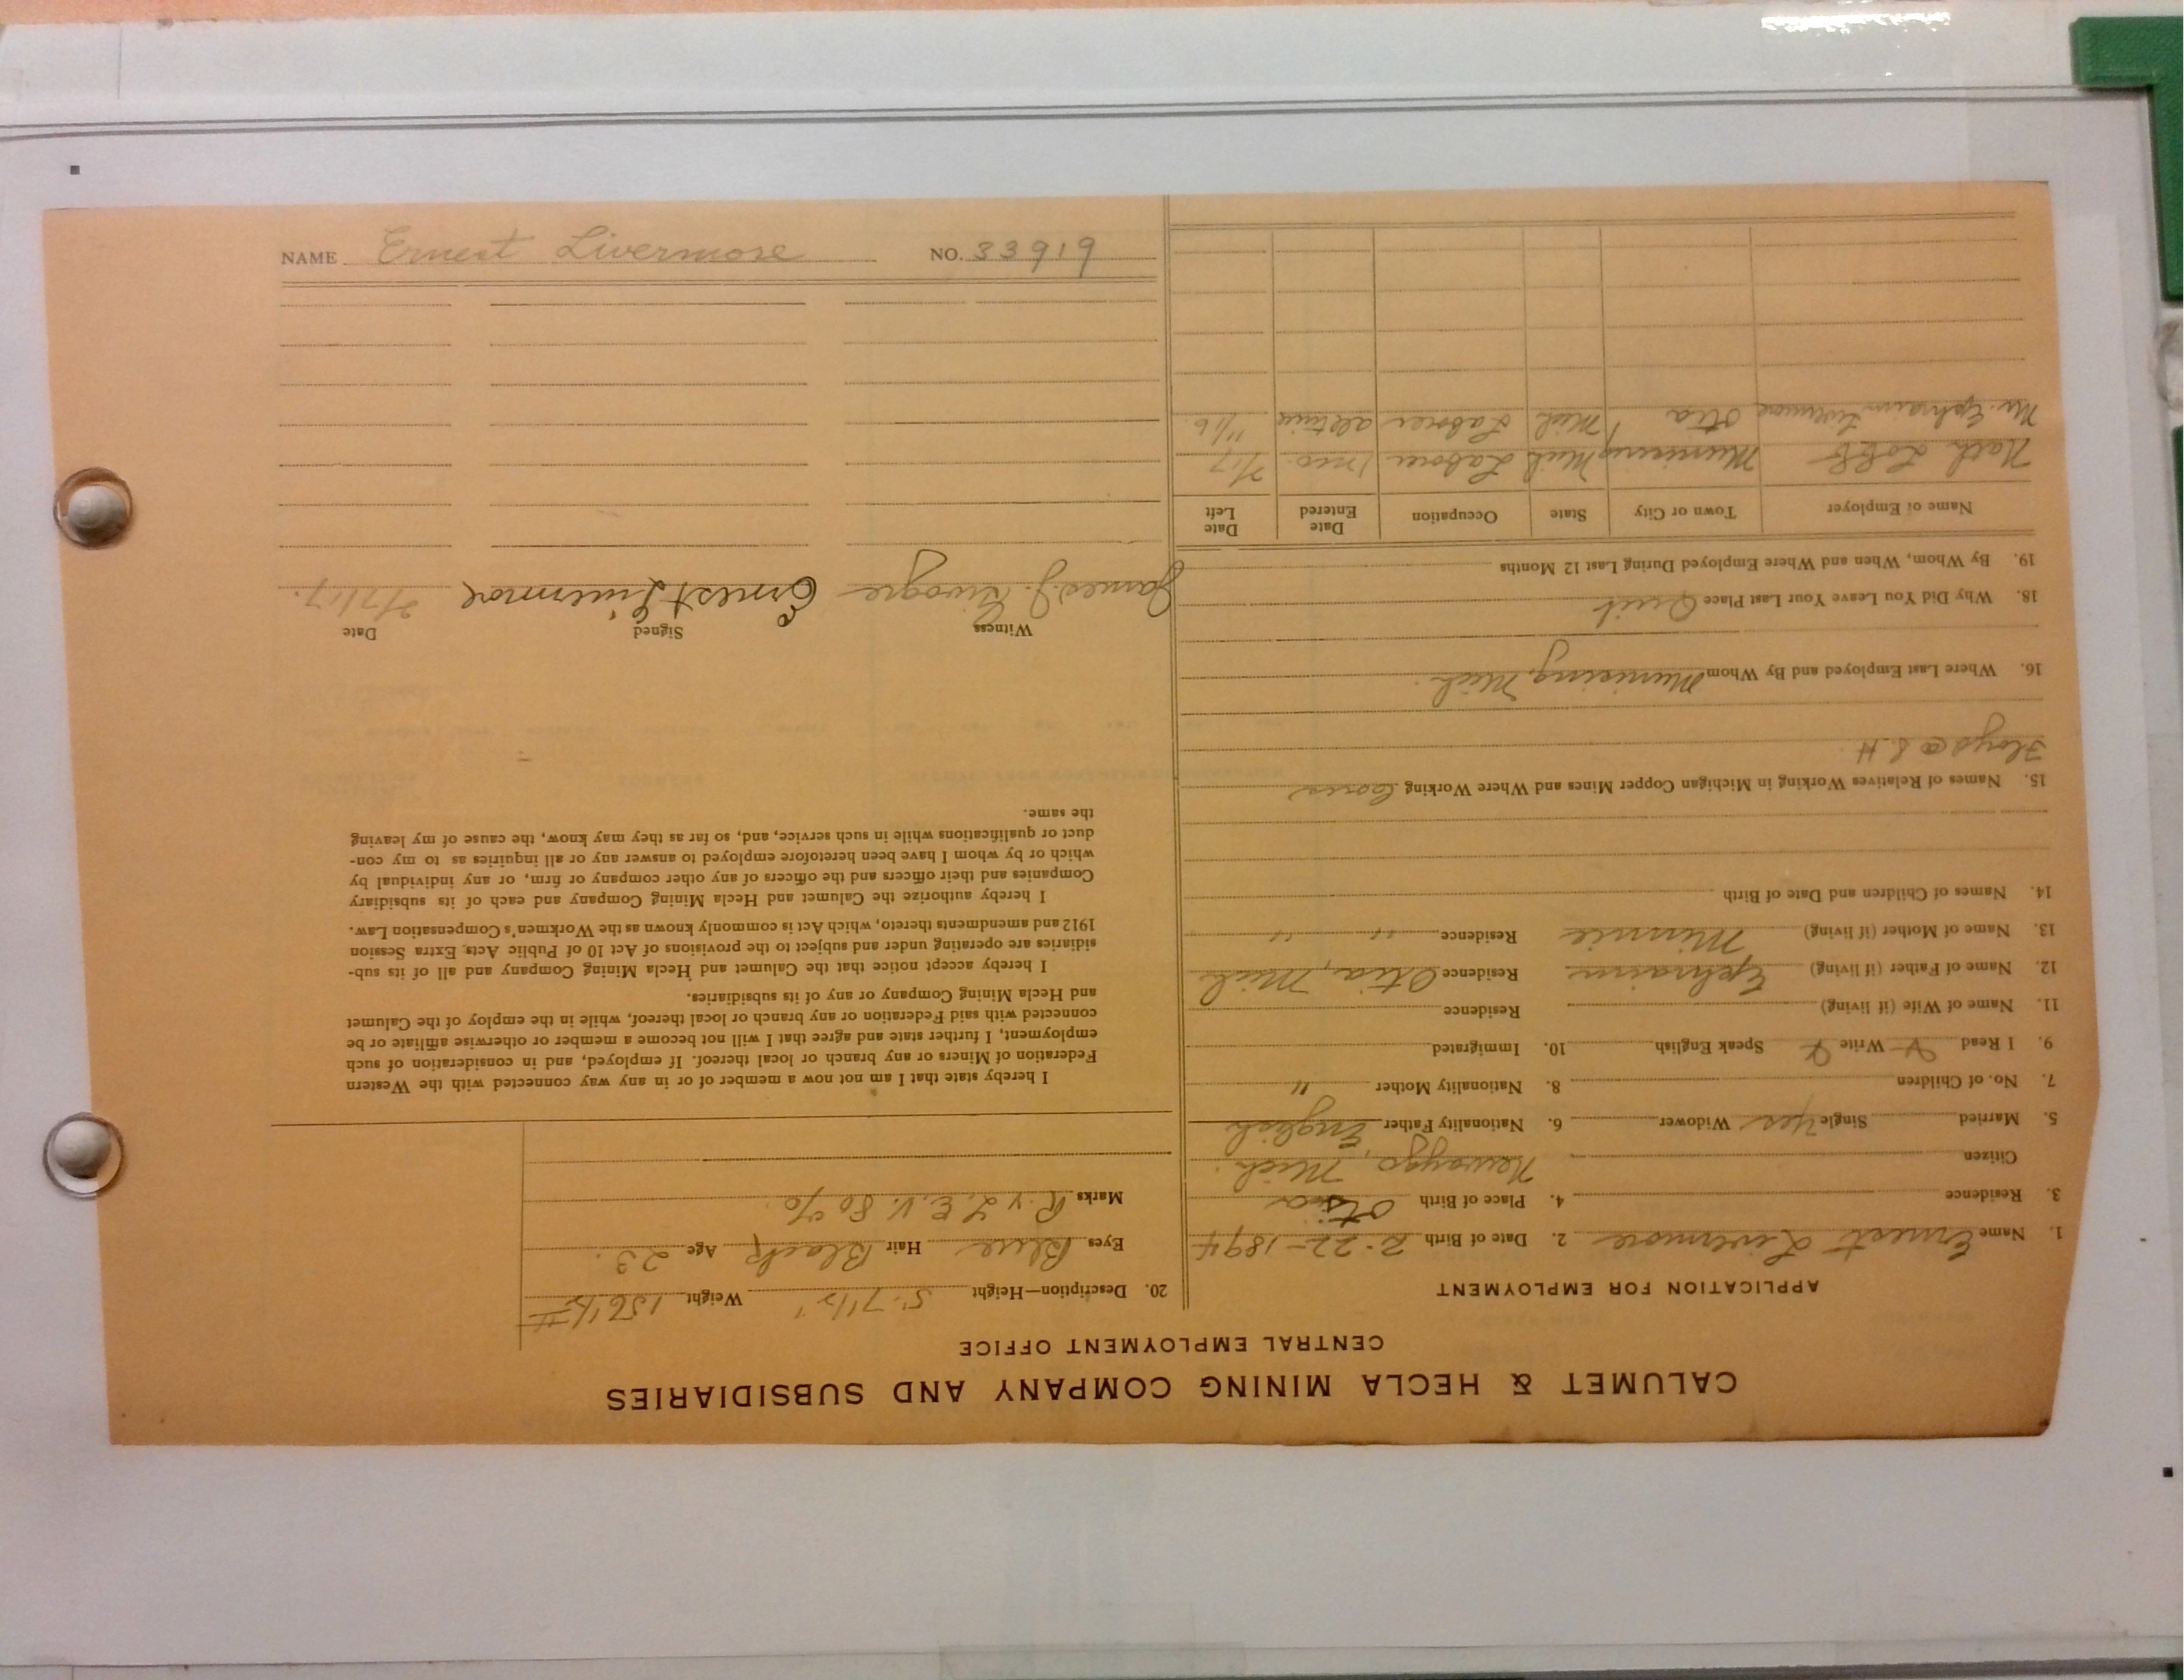 CALUMET & HECLA MINING COMPANY AND SUBSIDIARIES
CENTRAL EMPLOYMENT OFFICE
APPLICATION FOR EMPLOYMENT
1. Name Ernest Livermore 2. Date of Birth 2-22-1894
3. Residence 4. Place of Birth Otia
Citizen Newaygo, Mich.
5. Married Single Yes Widower 6. Nationality Father English
7. No. of Children 8. Nationality Mother "
9. I Read Write Speak English 10. Immigrated
11. Name of Wife (if living) Residence
12. Name of Father (if living) Ephraim Residence Otia, Mich
13. Name of Mother (if living) Minnie Residence " "
14. Names of Children and Date of Birth
15. Names of Relatives Working in Michigan Copper Mines and Where Working
Floyd @ S. H
16. Where Last Employed and By Whom Munising, Mich.
18. Why Did You Leave Your Last Place Quit
19. By Whom, When and Where Employed During Last 12 Months
Name of Employer Town or City State Occupation Date Entered Date Left
Munising Mich Laborer 1 mo. 2/17
Mr. Ephraim Livermore Otia Mich Laborer all time 11/16
20. Description—Height 5' 7 1/2" Weight 156 1/2 #
Eyes Blue Hair Black Age 23.
Marks R. & L. E. V. 80%.
I hereby state that I am not now a member of or in any way connected with the Western
Federation of Miners or any branch or local thereof. If employed, and in consideration of such
employment, I further state and agree that I will not become a member or otherwise affiliate or be
connected with said Federation or any branch or local thereof, while in the employ of the Calumet
and Hecla Mining Company or any of its subsidiaries.
I hereby accept notice that the Calumet and Hecla Mining Company and all of its sub-
sidiaries are operating under and subject to the provisions of Act 10 of Public Acts, Extra Session
1912 and amendments thereto, which Act is commonly known as the Workmen's Compensation Law.
I hereby authorize the Calumet and Hecla Mining Company and each of its subsidiary
Companies and their officers and the officers of any other company or firm, or any individual by
which or by whom I have been heretofore employed to answer any or all inquiries as to my con-
duct or qualifications while in such service, and, so far as they may know, the cause of my leaving
the same.
Witness Signed Date
James J. Ernest Livermore 2/7/17.
NAME Ernest Livermore NO. 33919